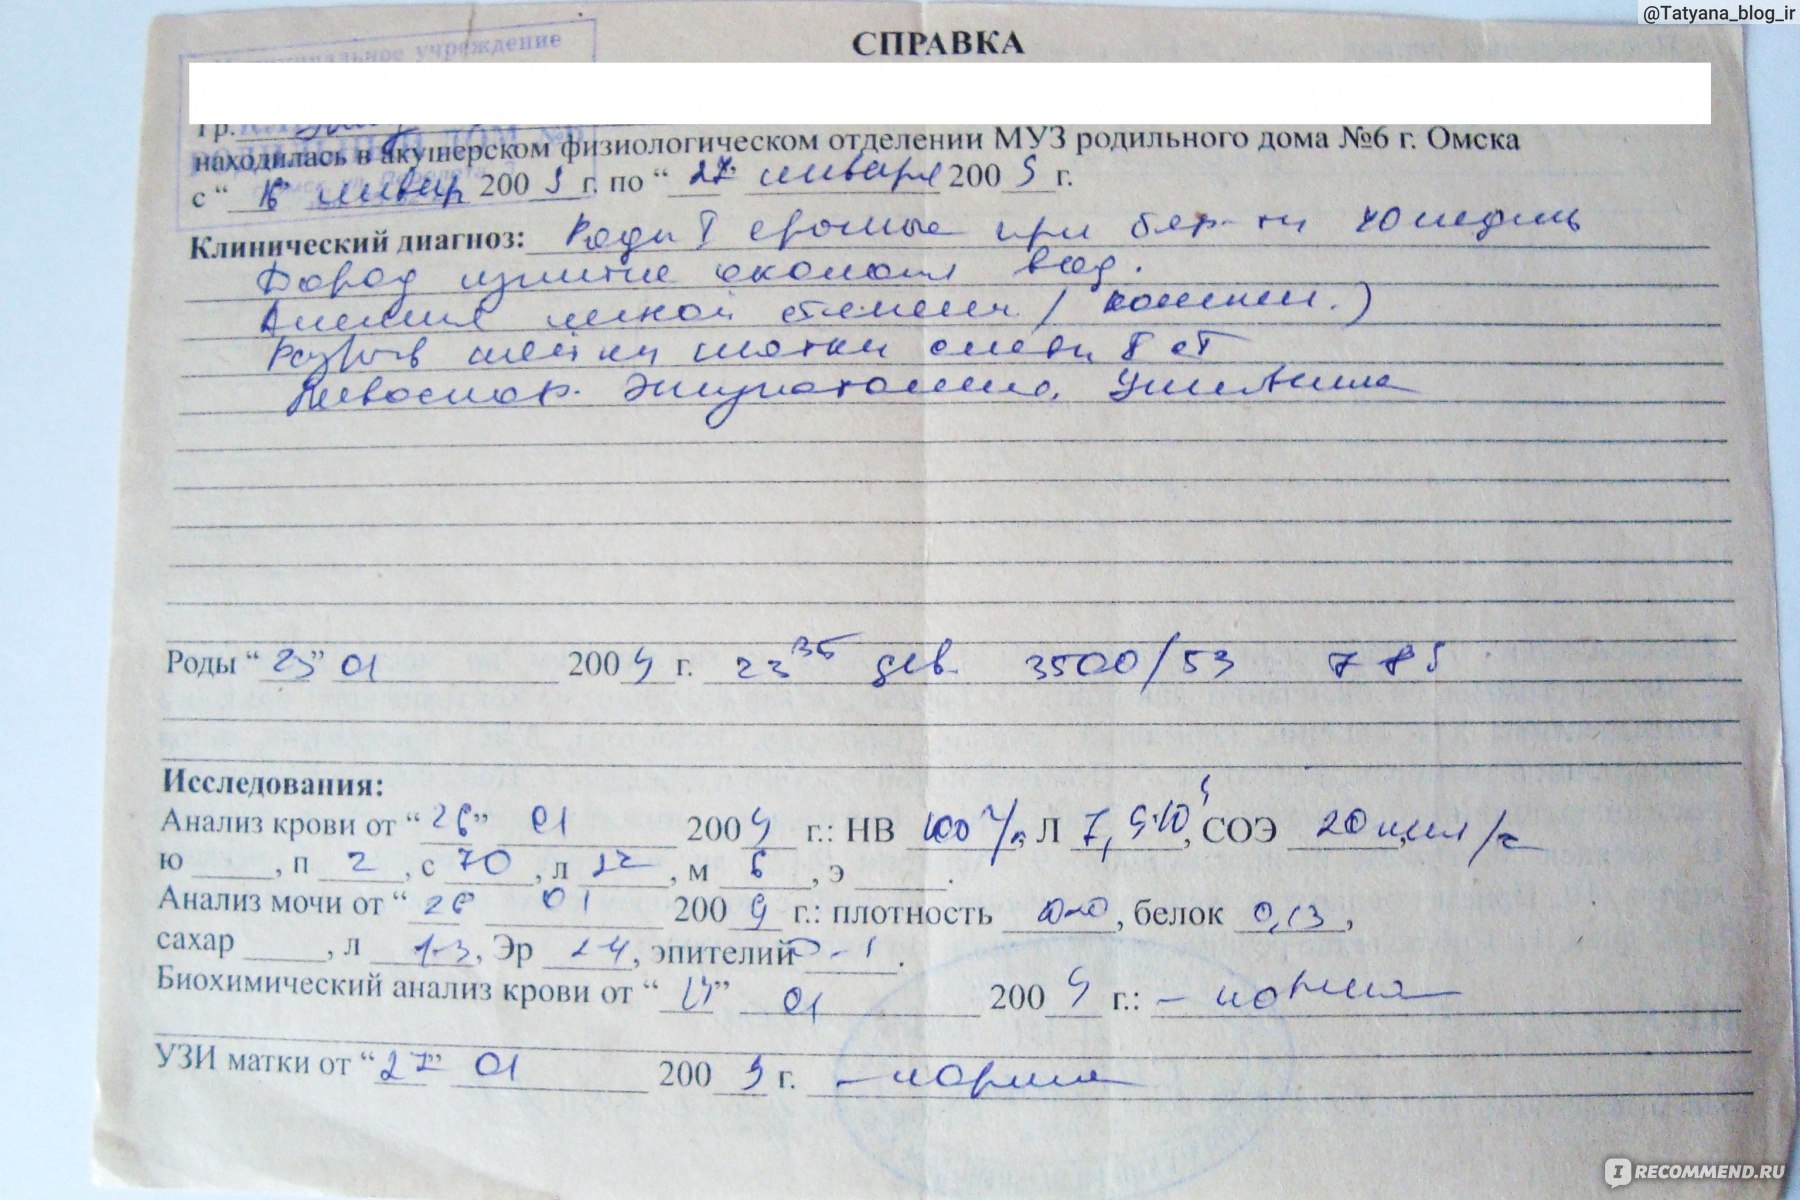 @Tatyana_blog_ir
СПРАВКА
учреждение
Гр.
находилась в акушерском физиологическом отделении МУЗ родильного дома №6 г. Омска
с “ 16 ” январ 200 9 г. по “ 27 ” января 200 9 г.
Клинический диагноз: Роды I срочные при бер-ти 40 недель
Дород излитие околопл вод.
Анемия легкой степени
Разрыв шейки матки слева I ст
Левостор. Эпизиотомия.
Роды “ 23 ” 01 200 9 г. 23 35 дев. 3500/53 7 8 б
Исследования:
Анализ крови от “ 26 ” 01 200 9 г.: НВ 100 г/л, Л 7,9·10 9, СОЭ 20 мм/ч
ю , п 2 , с 70 , л 22 , м 6 , э .
Анализ мочи от “ 26 01 200 9 г.: плотность 1020 , белок 0,13 ,
сахар , л 1-3 , Эр 2-4 , эпителий 0-1 .
Биохимический анализ крови от “ ” 01 200 9 г.: – норма
УЗИ матки от “ 27 ” 01 200 9 г. – норма
IRECOMMEND.RU